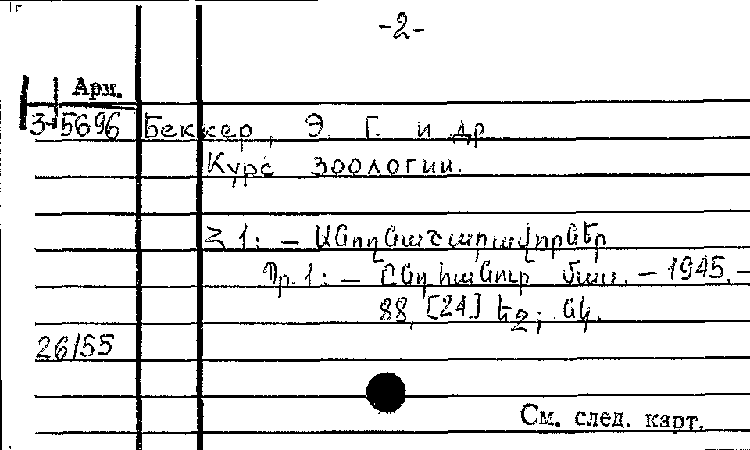 -2-
Арм.
3-5696 Беккер, Э. Г. и др
Курс зоологии.
Հ 1: – Անողնաշարավորներ
Պր. 1: – Ընդհանուր մաս. – 1945. –
88, [24] եջ; նկ.
26/55
См. след. карт.